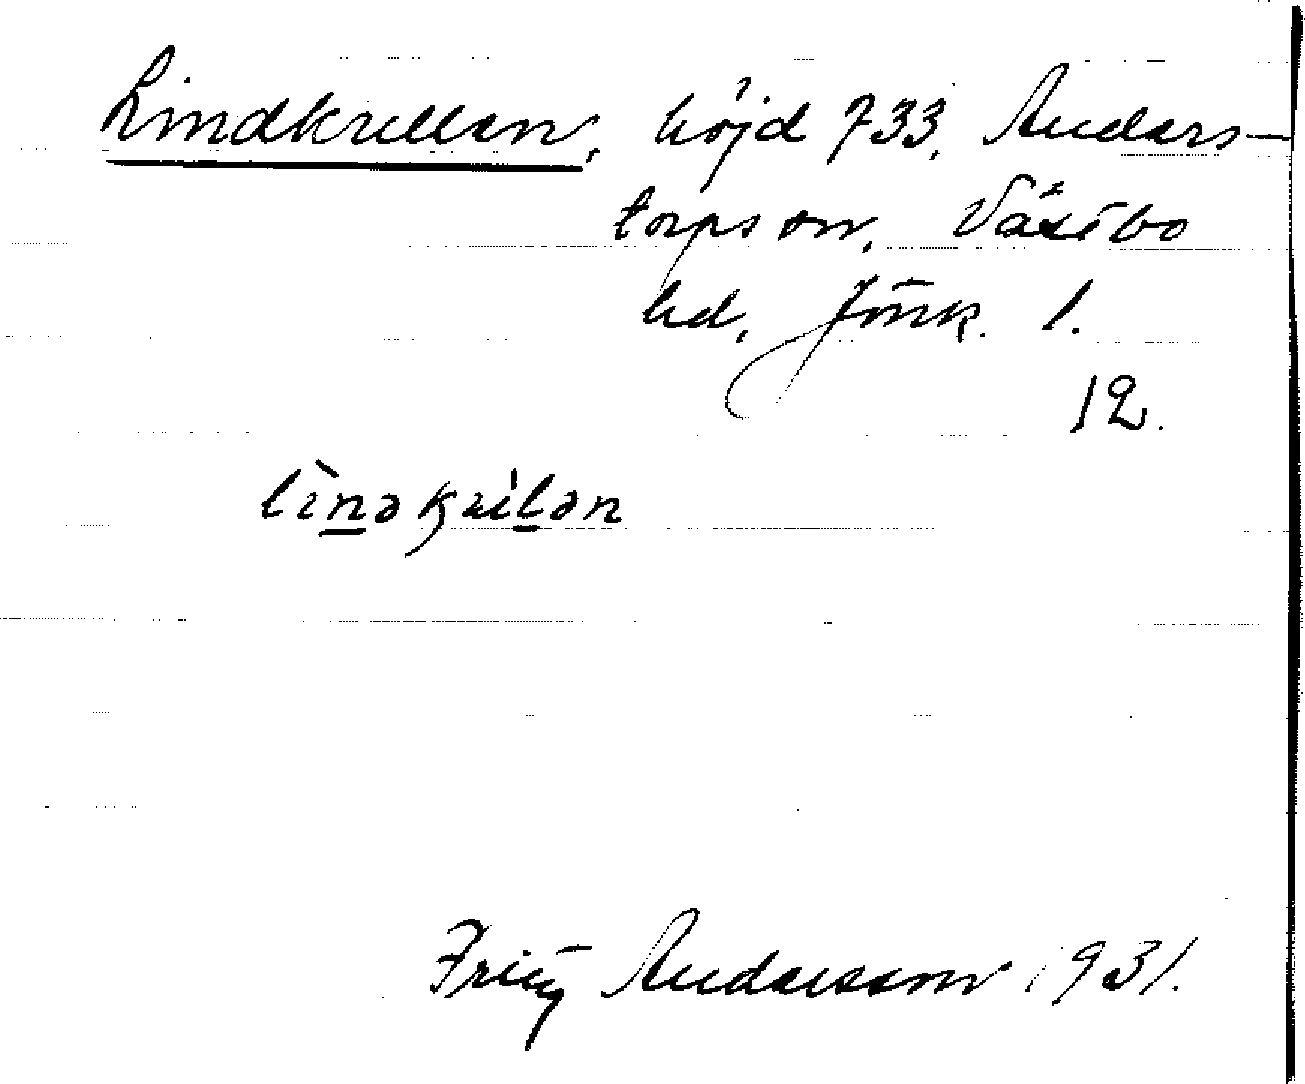 Lindkullen, höjd 733, Anders-
torps sn, Västbo
hd, Jönk. l.
12.
Fritz Andersson 1931.